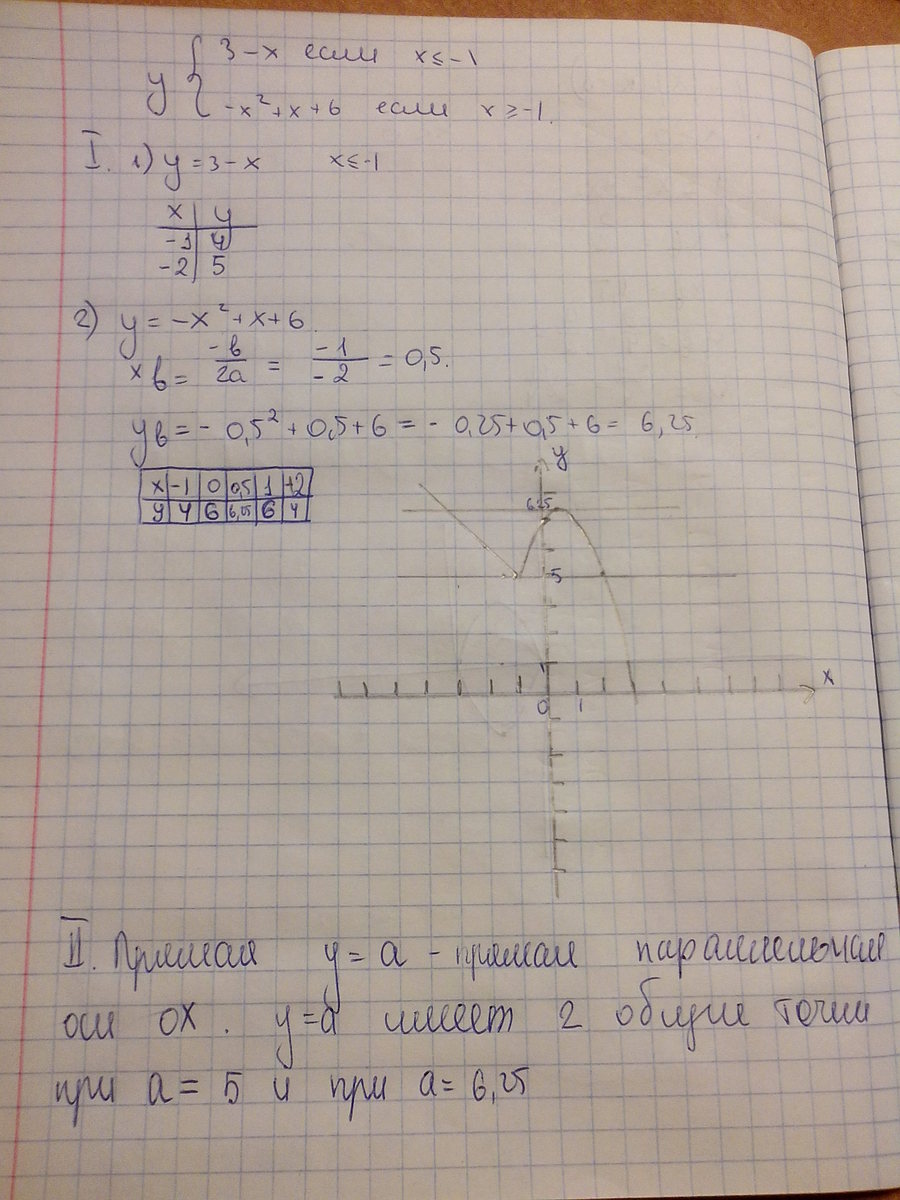 y { 3 - x если x ≤ -1
-x² + x + 6 если x ≥ -1.
I. 1) y = 3 - x x ≤ -1
x | y
-1 | 4
-2 | 5
2) y = -x² + x + 6.
xв = -в/2a = -1/-2 = 0,5.
yв = - 0,5² + 0,5 + 6 = - 0,25 + 0,5 + 6 = 6,25.
x | -1 | 0 | 0,5 | 1 | +2
y | 4 | 6 | 6,25 | 6 | 4
y
6,25
5
x
0 1
II. Прямая y = a - прямая параллельная
оси OX. y = a имеет 2 общие точки
при a = 5 и при a = 6,25